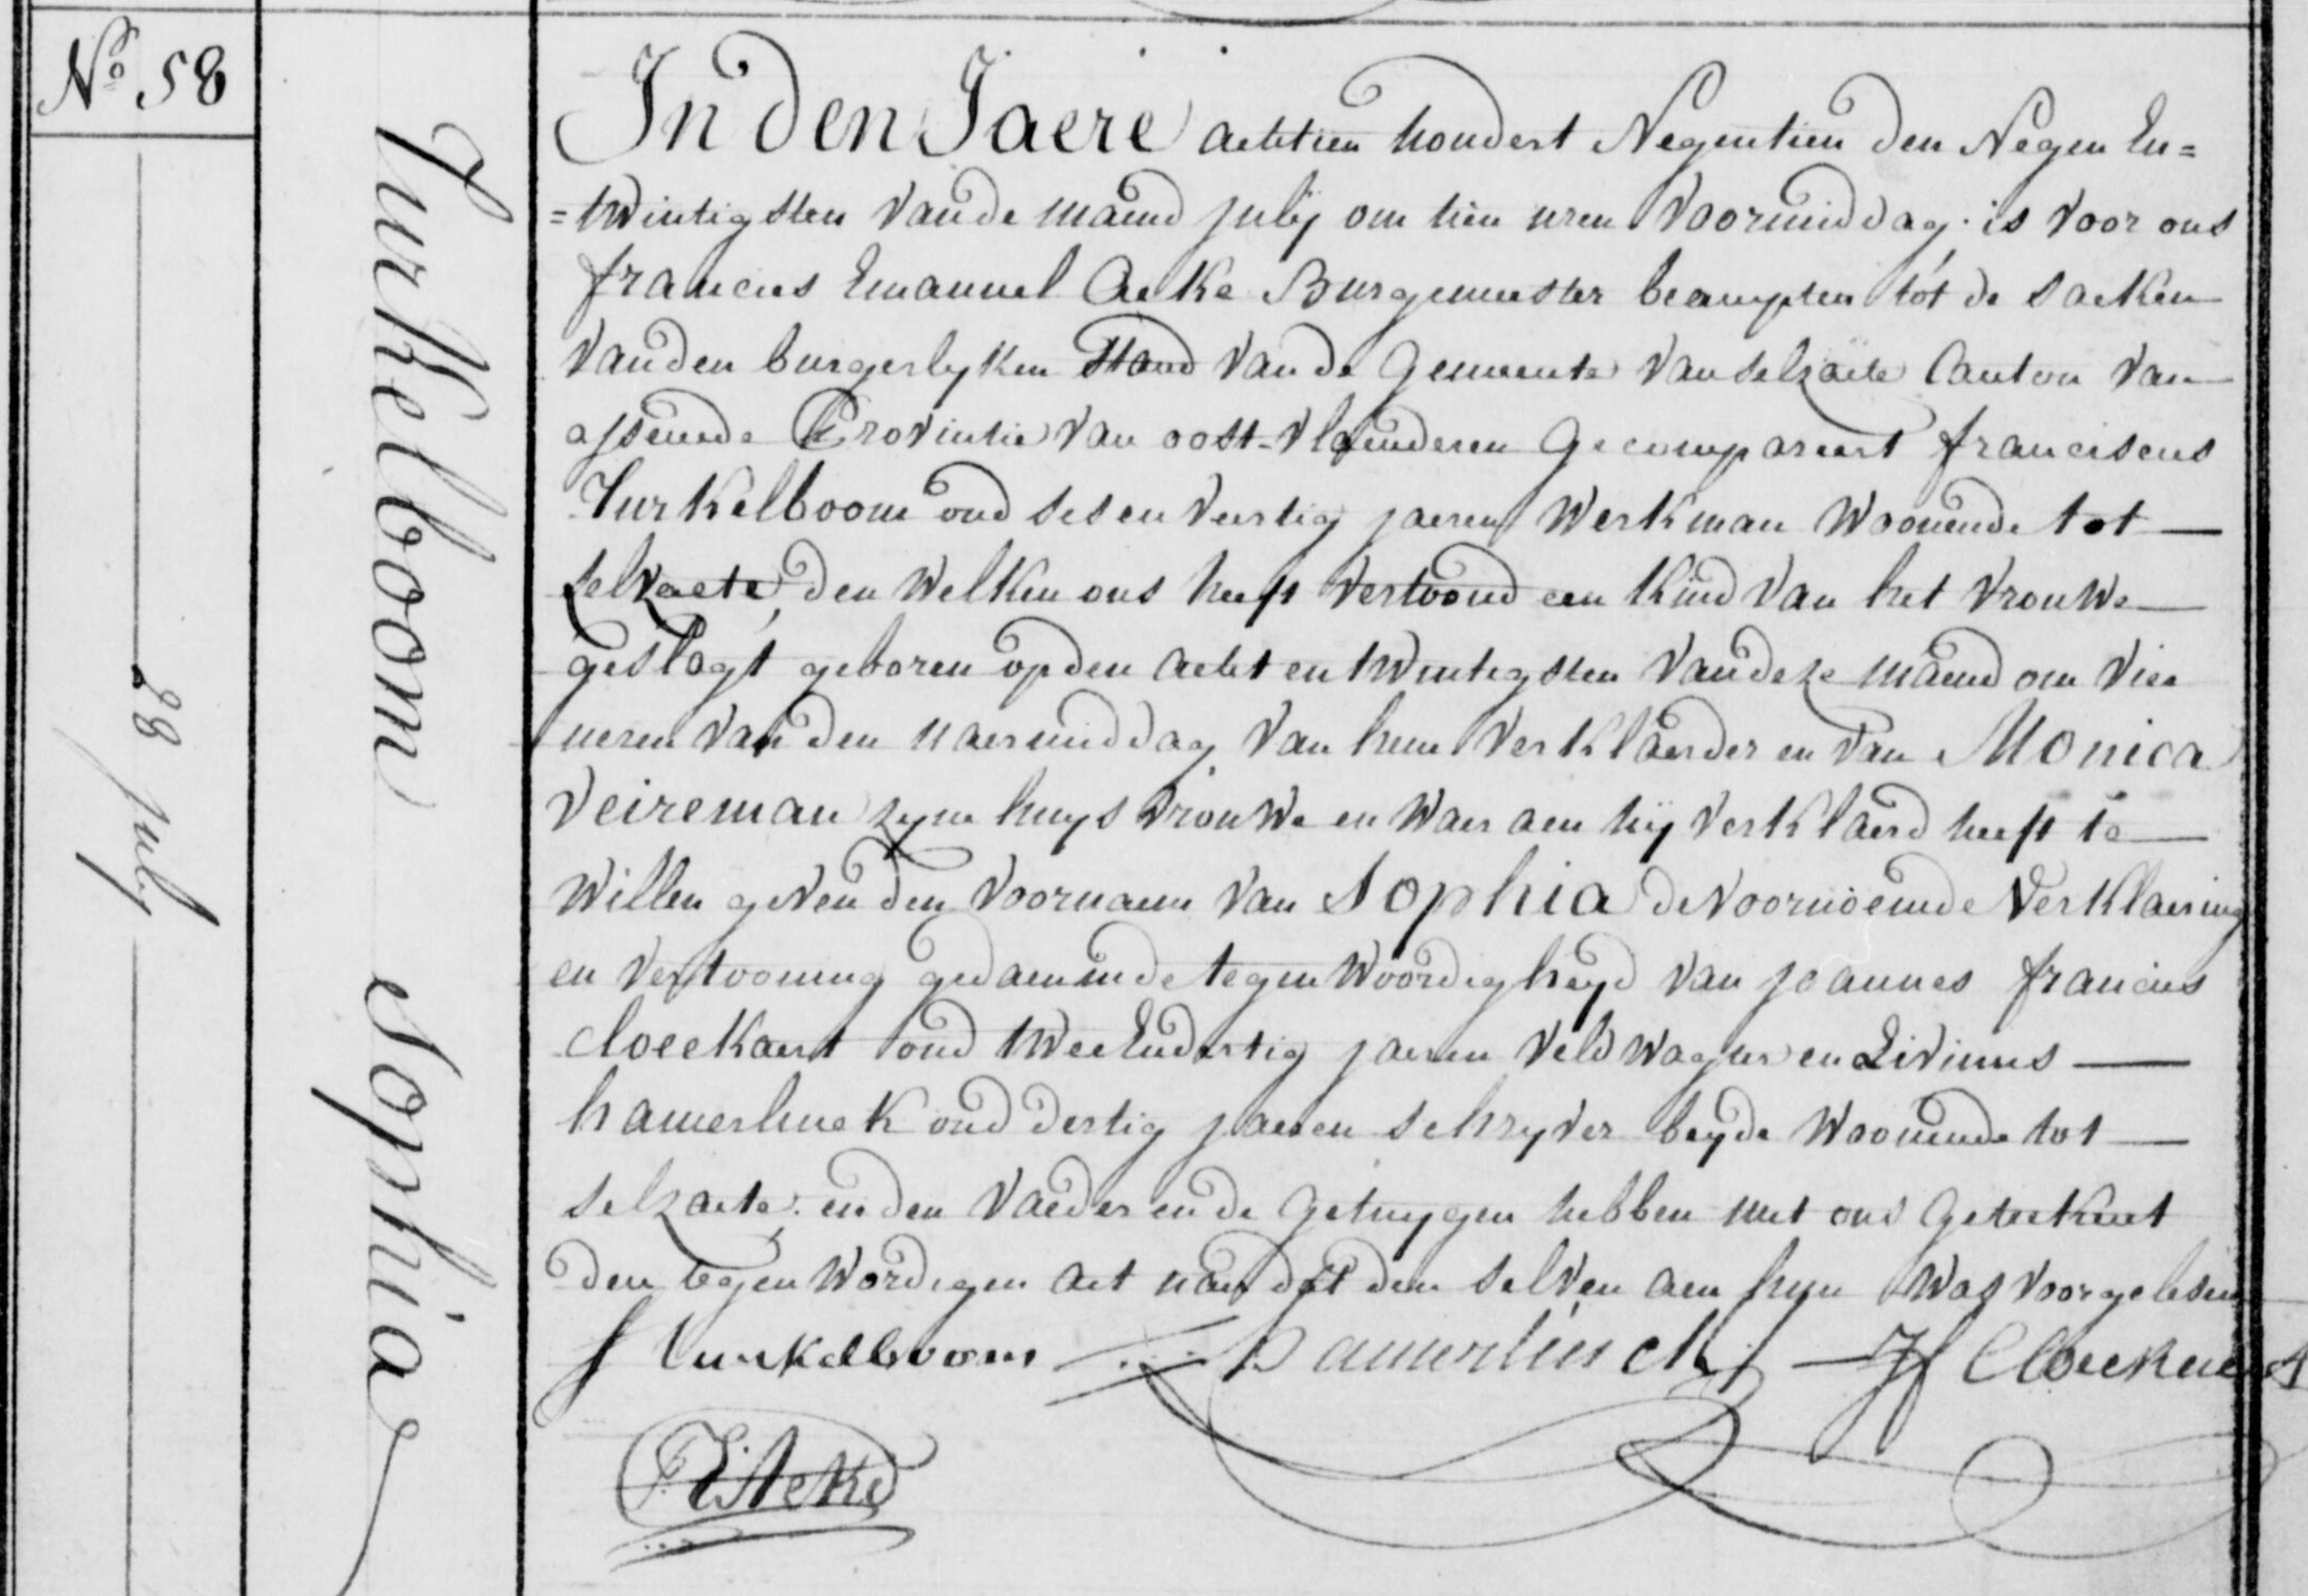 Nº 58
28 july
Turkelboom Sophia
In den Jaere achtien hondert Negentien den Negen En=
=twintigsten van de maend julij om tien uren voormiddag is voor ons
francies Emanuel Aeke Burgemeester beampten tot de saeken
van den burgerlyken Stand van de Gemeente van selzaete Canton van
assenede Provintie van oost-vlaenderen Gecompareert franciscus
Turkelboom oud sesenveertig jaeren Werkman Woonende tot
selzaete, den Welken ons heeft vertoond een kind van het vrouwe
geslagt geboren op den acht en twintigsten van deze maend om vier
ueren van den naermiddag van hem verklaerder en van Monica
Veireman zyne huysvrouwe en waer aen hij verklaerd heeft te
Willen geven den voornaem van Sophia de voornoemde verklaering
en vertooning gedaen in de tegenwoordigheyd van joannes francies
Cloeckaert oud twee En dertig jaeren veldwagter en Livinus
hamerlinck oud dertig jaeren schryver beyde Woonende tot
selzaete; en den vaeder en de getuygen hebben met ons geteekent
den tegenwordigen act naer dat den selven aen hun was voorgelesen
f Turkelboom Hamerlinck Jf Cloeckaert
F E Aeke